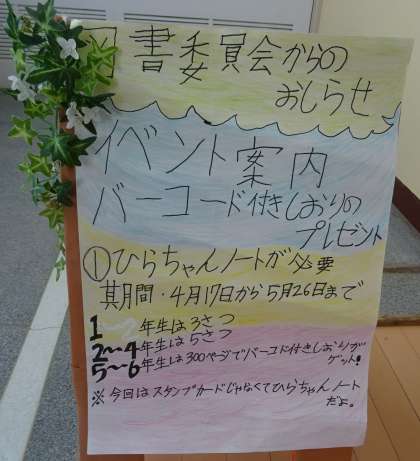 図書委員会からの
おしらせ
イベント案内
バーコード付きしおりの
プレゼント
①ひらちゃんノートが必要
其期間・4月17日から5月26日まで
1 年生は3さつ
2〜4年生は5さつ
5〜6年生は300ページでバーコード付きしおりが
ゲット!
※今回はスタンプカードじゃなくてひらちゃんノート
だよ。